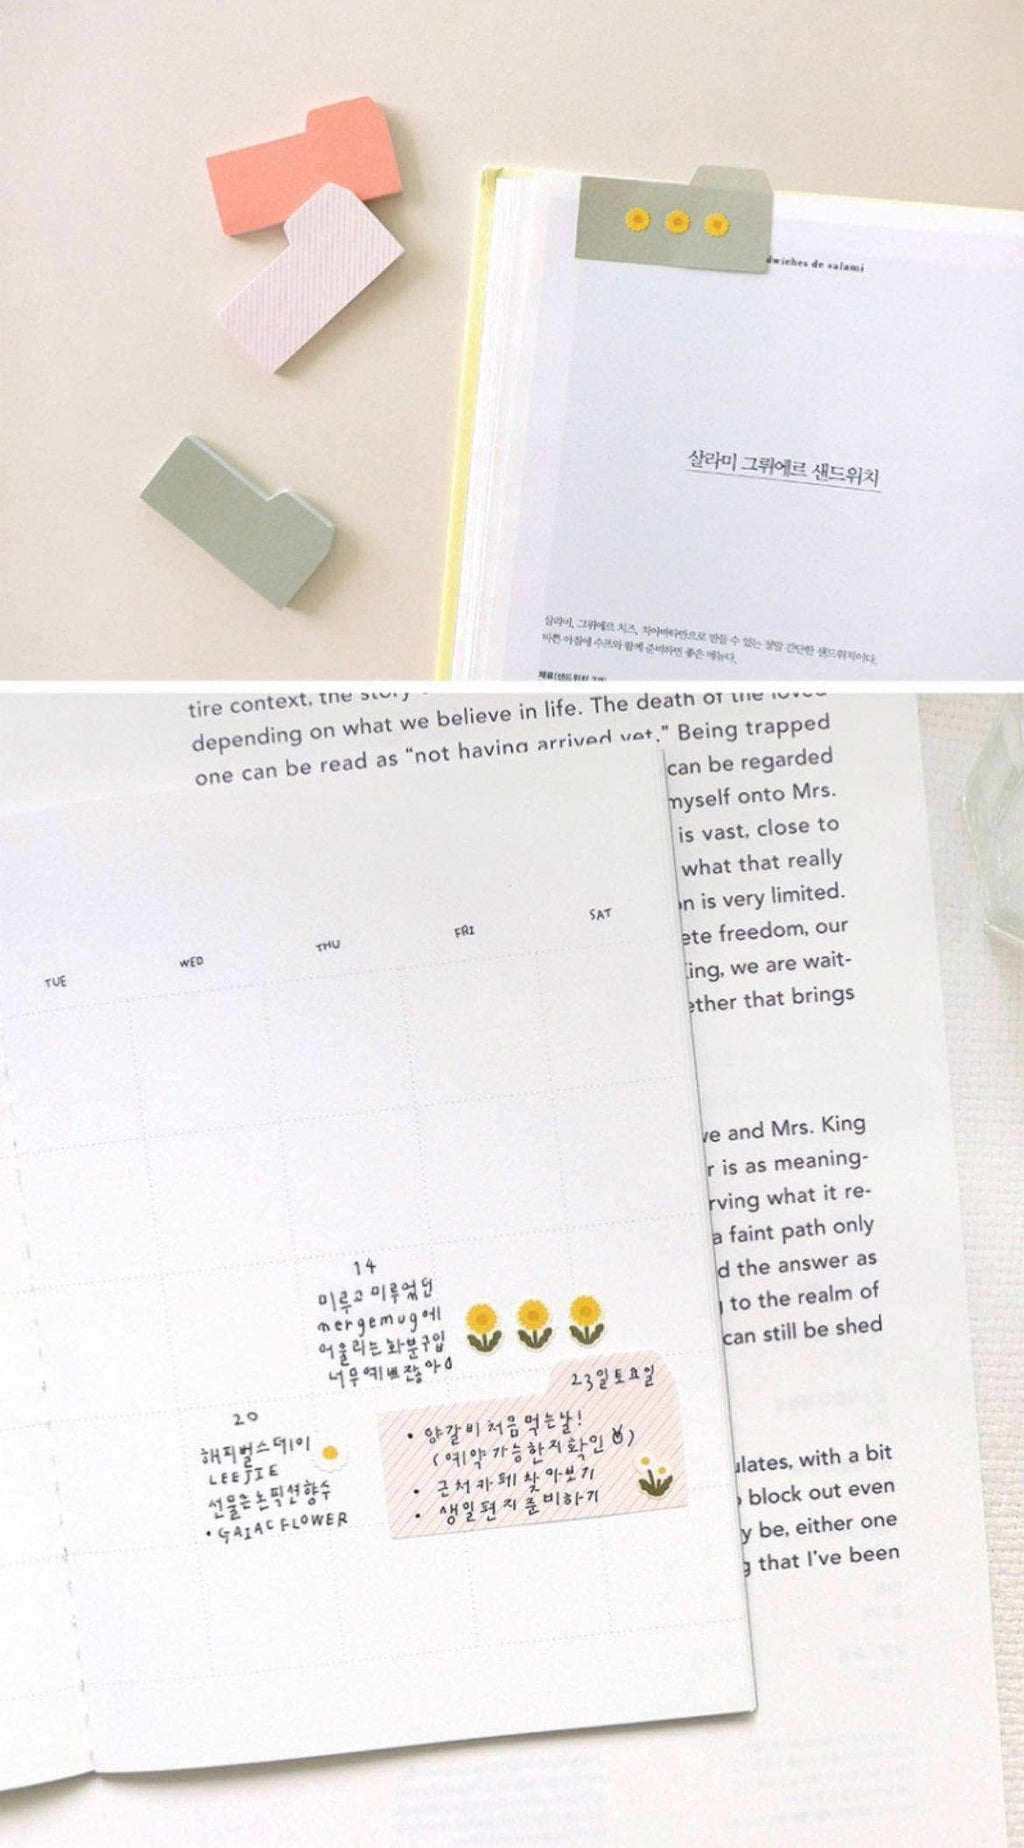 dwiches de salami
살라미 그뤼에르 샌드위치
살라미, 그뤼에르 치즈, 치아바타만으로 만들 수 있는 정말 간단한 샌드위치이다.
바쁜 아침에 수프와 함께 준비하면 좋은 메뉴다.
tire context, the story
depending on what we believe in life. The death of the loved
one can be read as “not having arrived yet.” Being trapped
can be regarded
myself onto Mrs.
is vast, close to
what that really
n is very limited.
ete freedom, our
ing, we are wait-
ether that brings
ve and Mrs. King
r is as meaning-
rving what it re-
a faint path only
d the answer as
to the realm of
can still be shed
ulates, with a bit
block out even
y be, either one
g that I've been
TUE WED THU FRI SAT
14
미루고 미루었던
mergemug에
어울리는 화분구입
너무예쁘잖아
20
해피벌스데이
LEEJIE
선물은논픽션향수
• GAIAC FLOWER
23일토요일
• 양갈비 처음 먹는날!
(예약가능한지확인)
• 근처카페찾아보기
• 생일편지준비하기